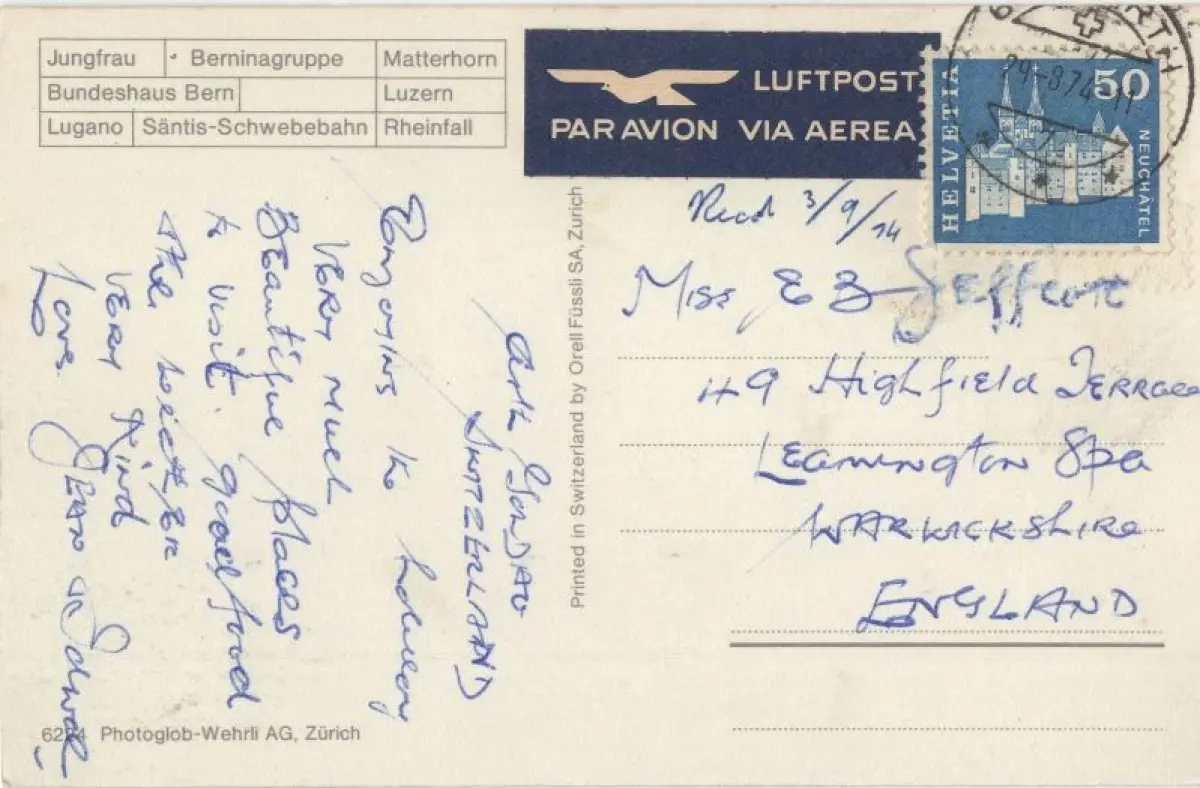 Jungfrau Berninagruppe Matterhorn
Bundeshaus Bern Luzern
Lugano Säntis-Schwebebahn Rheinfall
LUFTPOST
PAR AVION VIA AEREA
HELVETIA
50
NEUCHÂTEL
29-8 74-11
Printed in Switzerland by Orell Füssli SA, Zurich
Arth Goldau
SWITZERLAND
Enjoying the
VERY MUCH
BEautiful places
to visit. good food
the
VERY Kind
Love. JEAN
Recd 3/9/74
MISS E B
49 HighfiElD TERRACE
LEAmington Spa
WARWICKShire
ENGLAND
Photoglob-Wehrli AG, Zürich